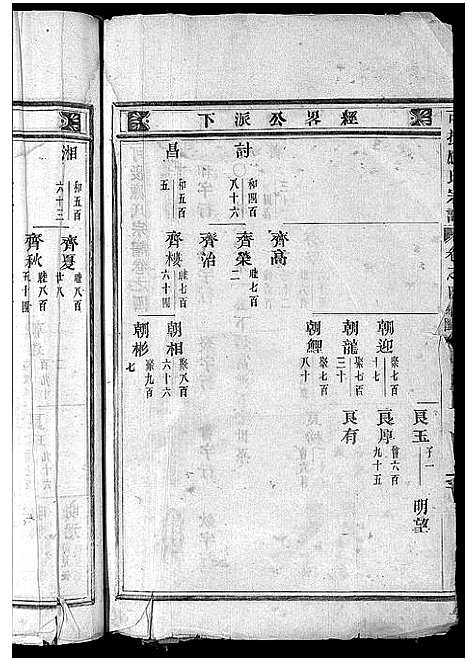 經畧公派下
明望
良玉 子一
良厚 會六百九十五
良有
朝迎 聚七百十七
朝龍 聚七百三十
朝鯉 聚七百八十
齊高
齊榮 睦七百二
齊治
齊樓 睦七百六十四
朝相 聚八百六十六
朝彬 聚九百七
討 和四百八十六
昌 和五百五
湘 和五百六十三
齊夏 睦八百廿八
齊秋 睦八百五十四